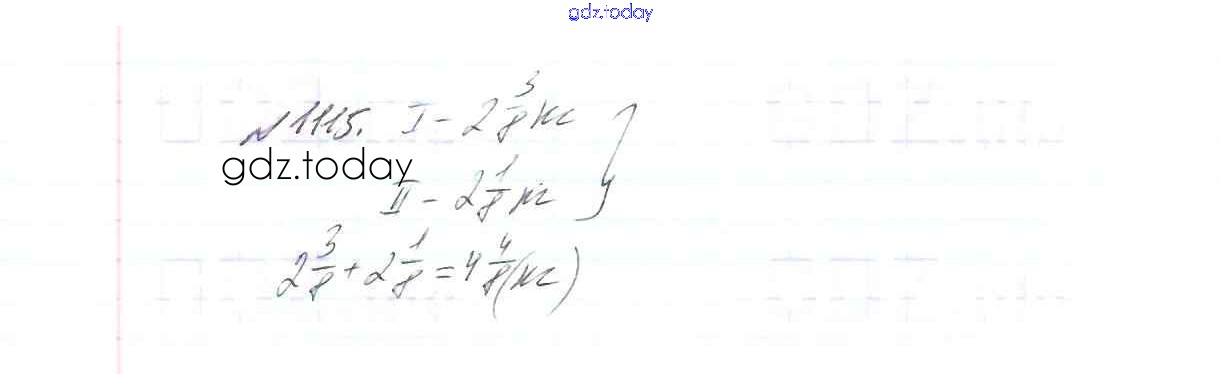 gdz.today
№1115. I - 2 3/8 кг
gdz.today
II - 2 1/8 кг
2 3/8 + 2 1/8 = 4 4/8 (кг)